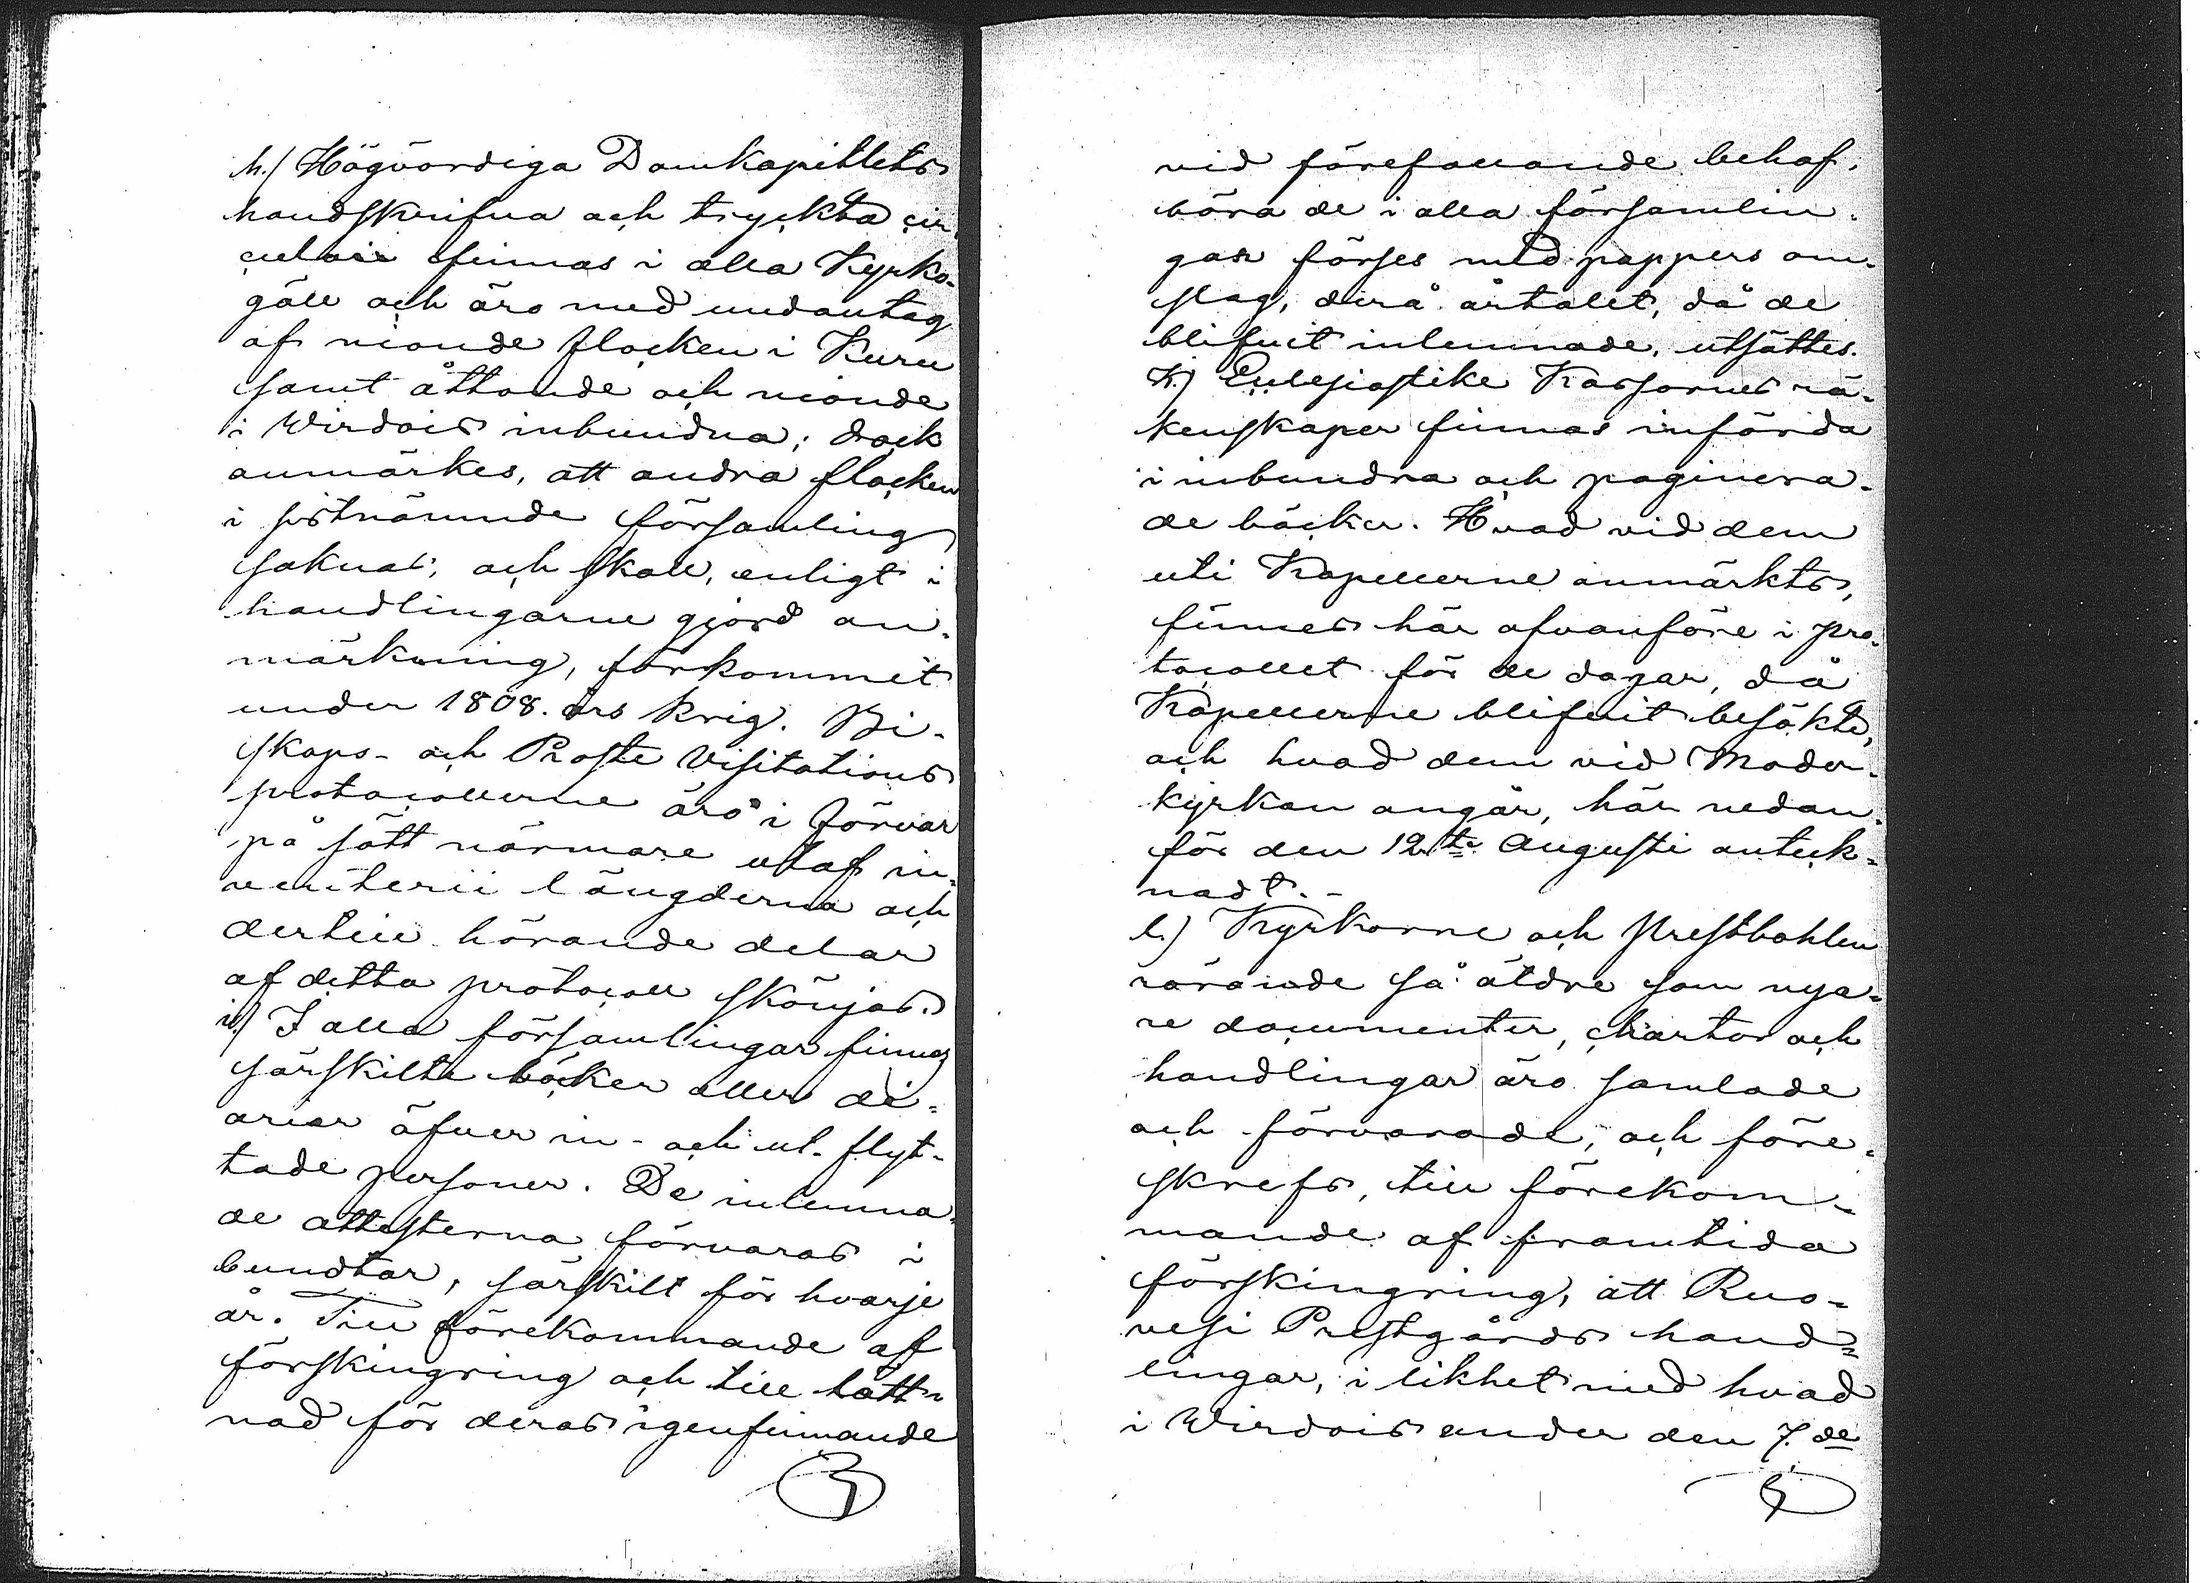 h.) Högvördiga Domkapitlets
handskrifna och tryckta cir
culair finnas i alla Kyrko-
gäll och äro med undantag
af nionde flocken i Kuru
samt åttonde och nionde
i Wirdois inbundna; dock
anmärkes, att andra flocken
i sistnämnde församling
saknas, och skall, enligt i
handlingarne gjord an-
märkning, förkommit
under 1808. års krig. Bi-
skops- och Proste Visitations
protocollerne äro i förvar
på sätt närmare utaf in-
venterii längderna och
dertill hörande delar
af detta protocoll skönjas.
i.) I alla församlingar finnas
särskilte böcker eller di-
arier öfver in- och ut-flyt-
tade personer. De inlemna-
de attesterna förvaras i
bundtar, särskilt för hvarje
år. Till förekommande af
förskingring och till lätt-
nad för deras igenfinnande
vid förefallande behof,
böra de i alla församlin-
gar förses med pappers om-
slag, derå årtalet, då de
blifvit inlemnade, utsättes.
K.) Eclesiastike Kassornes rä-
kenskaper finnas införda
i inbundna och paginera-
de böcker. Hvad vid dem
uti Kapellerne anmärkts,
finnes här ofvanföre i pro-
tocollet för de dagar, då
Kapellerne blifvit besökte,
och hvad dem vid Moder-
kyrkan angår, här nedan-
för den 12.te Augusti anteck-
nadt.-
l.) Kyrkorne och Prestbohlen
rörande så äldre som nya-
re documenter, chartor och
handlingar äro samlade
och förvarade, och före-
skrefs, till förekom-
mande af framtida
förskingring, att Ruo-
vesi Prestgårds hand-
lingar, i likhet med hvad
i Wirdois under den 7.de